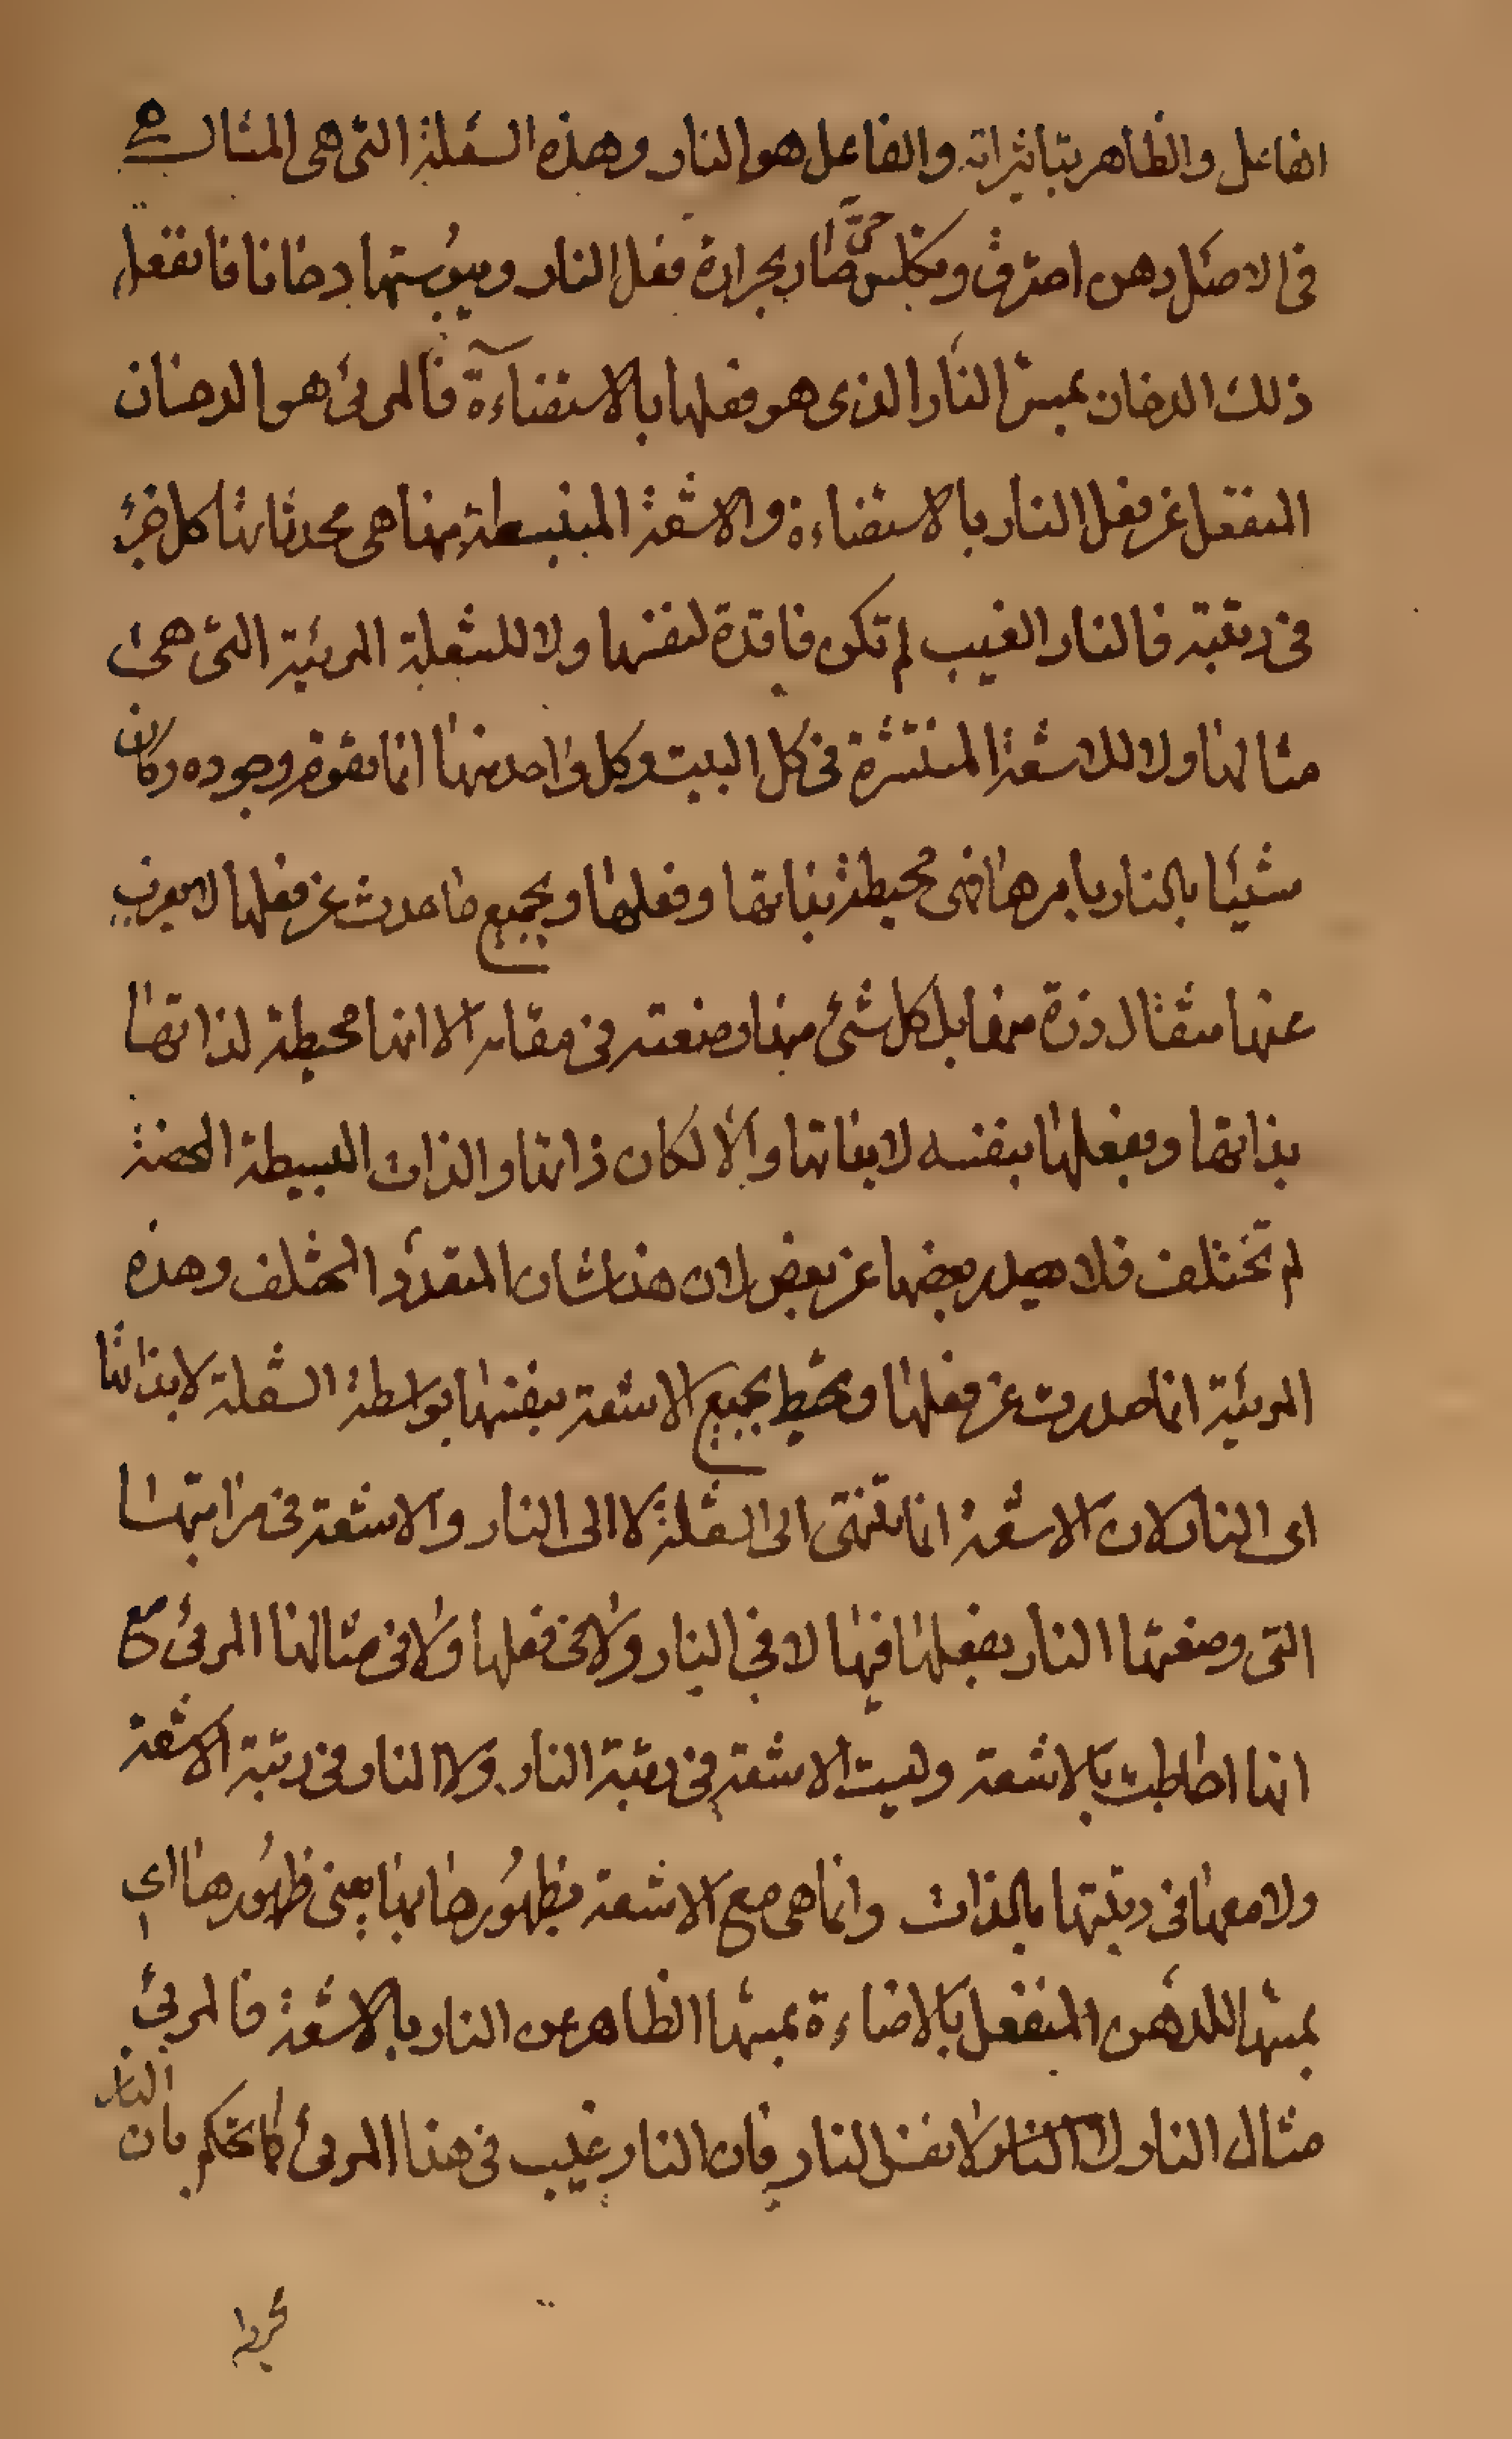 الفاعل والظاهر بتاثيراته والفاعل هو النار وهذه الشعلة التى هى المثال هى
فى الاصل دهن احترق وتكلس حتى صار بحرارة فعل النار ويبوستها دخانا فانفعل
ذلك الدخان بمس النار الذى هو فعلها بالاستضاءة فالمرئى هو الدخان
المنفعل عن فعل النار بالاستضاءة والاشعة المنبسطة منها هى محدثاتها كل جزء
فى رتبته فالنار الغيب لم تكن فاقدة لنفسها ولا للشعلة المرئية التى هى
مثالها ولا للاشعة المنتشرة فى كل البيت وكل واحد منها انما تقوم وجوده وكان
شيئا بالنار بامرها فهى محيطة بذاتها وفعلها وبجميع ما حدث عن فعلها لا يعزب
عنها مثقال ذرة من كل شئ منها وضعته فى مقامه الا انها محيطة لذاتها
بذاتها وبفعلها بنفسه لا بذاتها والا لكان ذاتها والذات البسيطة البحتة
لم تختلف فلا يصدر بعضها عن بعض لان هذا شان المتعدد المختلف وهذه
المرئية انما صدرت عن فعلها وتحيط بجميع الاشعة بنفسها بواسطة الشعلة لا بذاتها
اى النار لان الاشعة انما تنتهى الى الشعلة لا الى النار والاشعة فى مراتبها
التى وضعتها النار بفعلها فيها لا فى النار ولا فى فعلها ولا فى مثالها المرئى مع
انها احاطت بالاشعة وليست الاشعة فى رتبة النار ولا النار فى رتبة الاشعة
ولا معها فى رتبتها بالذات وانما هى مع الاشعة بظهورها بها يعنى ظهورها اى
بمسها للدهن المنفعل بالاضاءة بمسها الظاهر عن النار بالاشعة فالمرئى
مثال النار لا نفس النار فان النار غيب فى هذا المرئى كما تحكم بان النار